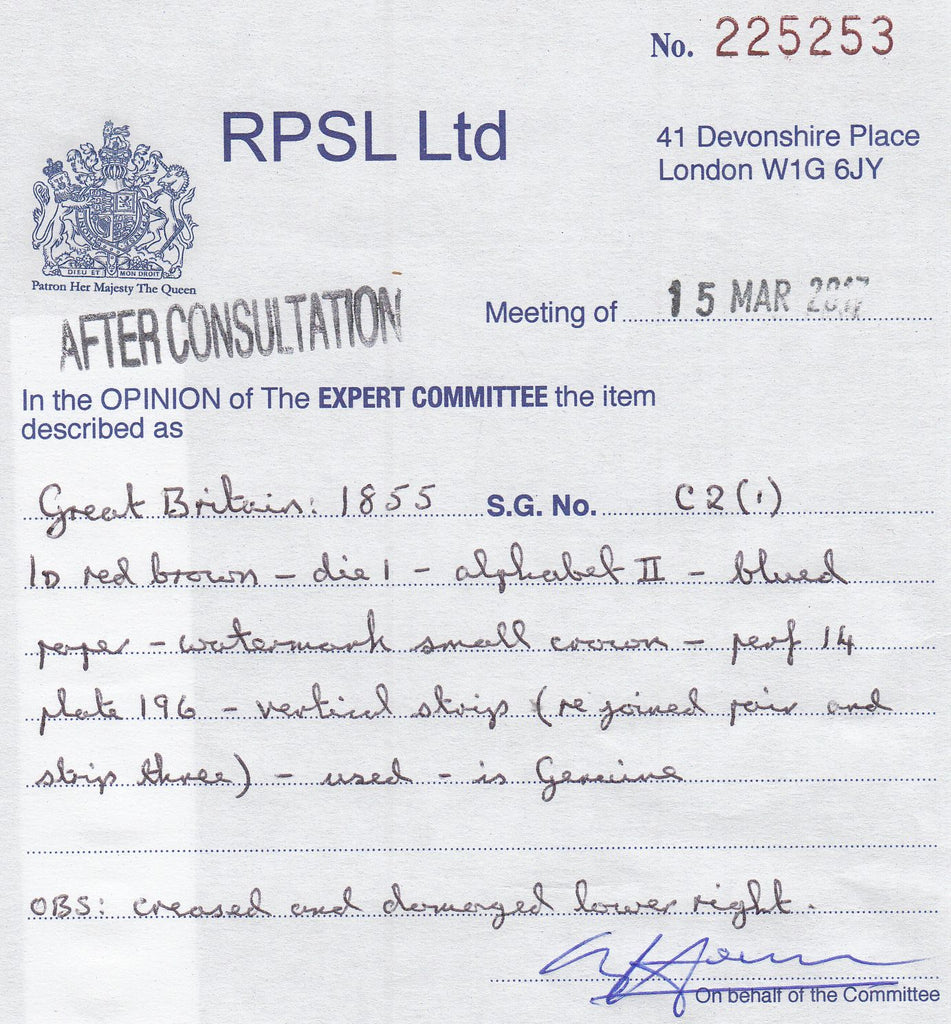 No. 225253
RPSL Ltd
41 Devonshire Place
London W1G 6JY
DIEU ET MON DROIT
Patron Her Majesty The Queen
AFTER CONSULTATION
Meeting of 15 MAR 2017
In the OPINION of The EXPERT COMMITTEE the item
described as
Great Britain: 1855 S.G. No. C2(1)
1D red brown - die 1 - alphabet II - blued
paper - watermark small crown - perf 14
plate 196 - vertical strip (rejoined pair and
strip three) - used - is Genuine
OBS: creased and damaged lower right.
On behalf of the Committee